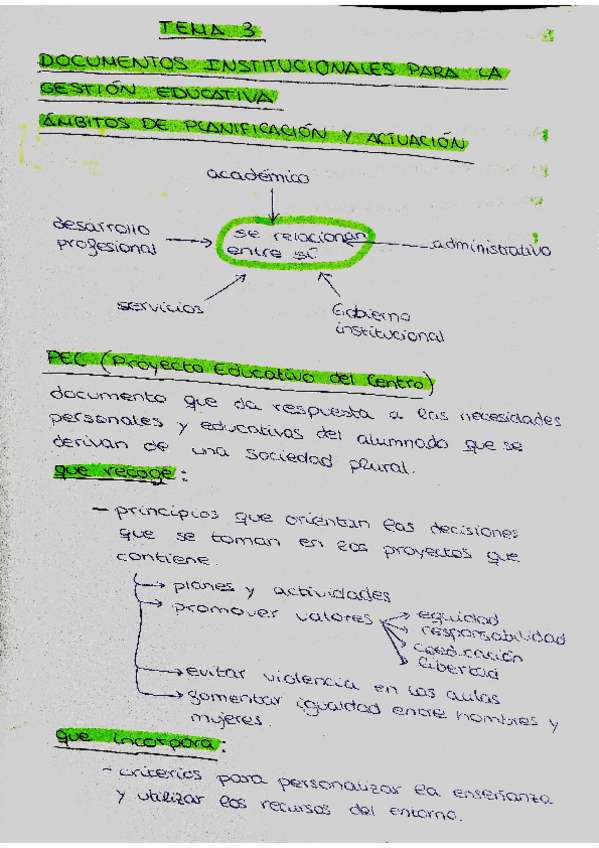 TEMA 3
DOCUMENTOS INSTITUCIONALES PARA LA
GESTIÓN EDUCATIVA
ÁMBITOS DE PLANIFICACIÓN Y ACTUACIÓN
académico
desarrollo
profesional
se relacionan
entre sí
administrativo
servicios
Gobierno
institucional
PEC (Proyecto Educativo del Centro)
documento que da respuesta a las necesidades
personales y educativas del alumnado que se
derivan de una sociedad plural.
que recoge:
- principios que orientan las decisiones
que se toman en los proyectos que
contiene.
→ planes y actividades
→ promover valores → equidad
→ responsabilidad
→ coeducación
→ libertad
→ evitar violencia en las aulas
→ fomentar igualdad entre hombres y
mujeres.
que incorpora:
- criterios para personalizar la enseñanza
y utilizar los recursos del entorno.